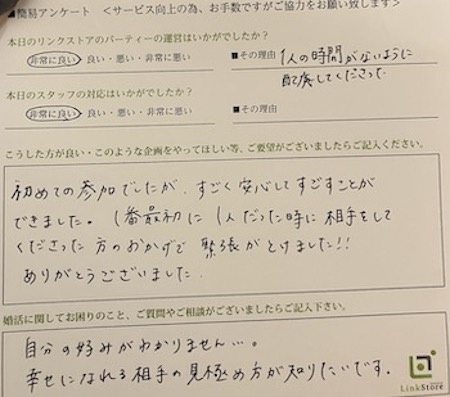 ■簡易アンケート ＜サービス向上の為、お手数ですがご協力をお願い致します＞
本日のリンクストアのパーティーの運営はいかがでしたか？
非常に良い・良い・悪い・非常に悪い ■その理由 1人の時間がないように
配慮してくださった
本日のスタッフの対応はいかがでしたか？
非常に良い・良い・悪い・非常に悪い ■その理由
こうした方が良い・このような企画をやってほしい等、ご要望がございましたらご記入ください。
初めての参加でしたが、すごく安心してすごすことが
できました。1番最初に1人だった時に相手をして
くださった方のおかげで緊張がとけました!!
ありがとうございました.
婚活に関してお困りのこと、ご質問やご相談がございましたらご記入下さい。
自分の好みがわかりません…。
幸せになれる相手の見極め方が知りたいです。
LinkStore